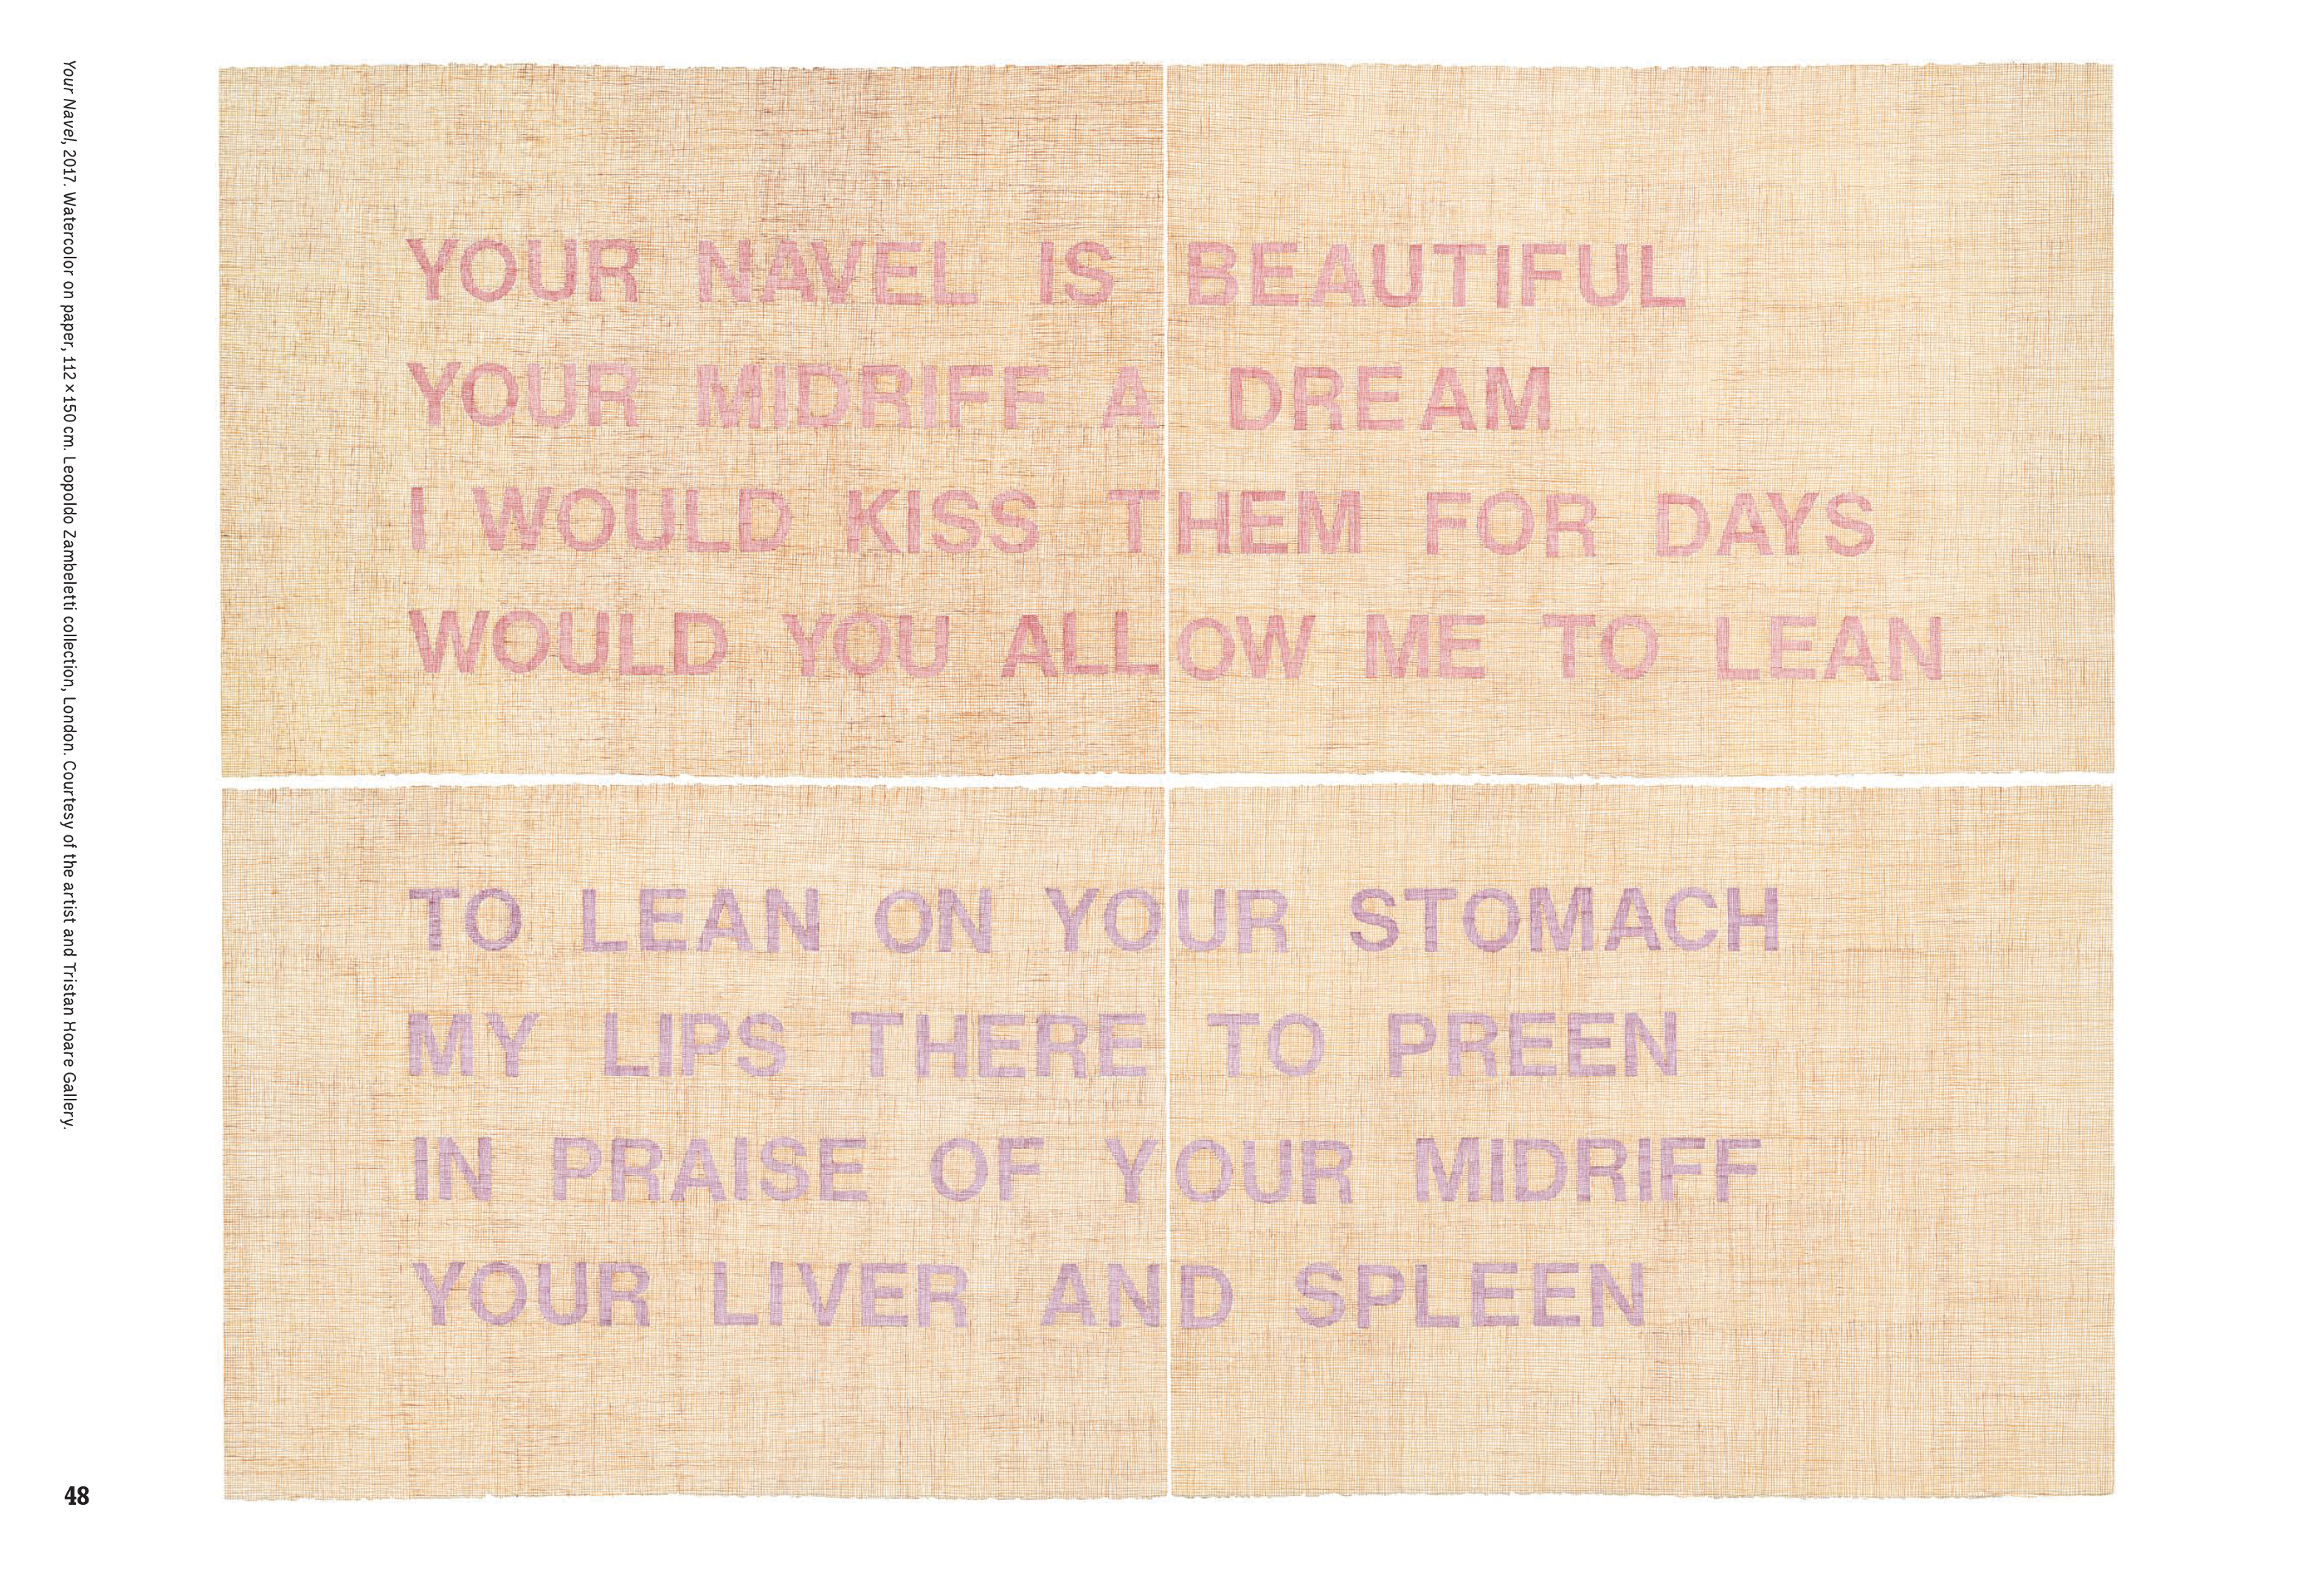 YOUR NAVEL IS BEAUTIFUL
YOUR MIDRIFF A DREAM
I WOULD KISS THEM FOR DAYS
WOULD YOU ALLOW ME TO LEAN
TO LEAN ON YOUR STOMACH
MY LIPS THERE TO PREEN
IN PRAISE OF YOUR MIDRIFF
YOUR LIVER AND SPLEEN
Your Navel, 2017. Watercolor on paper, 112 × 150 cm. Leopoldo Zambeletti collection, London. Courtesy of the artist and Tristan Hoare Gallery.
48